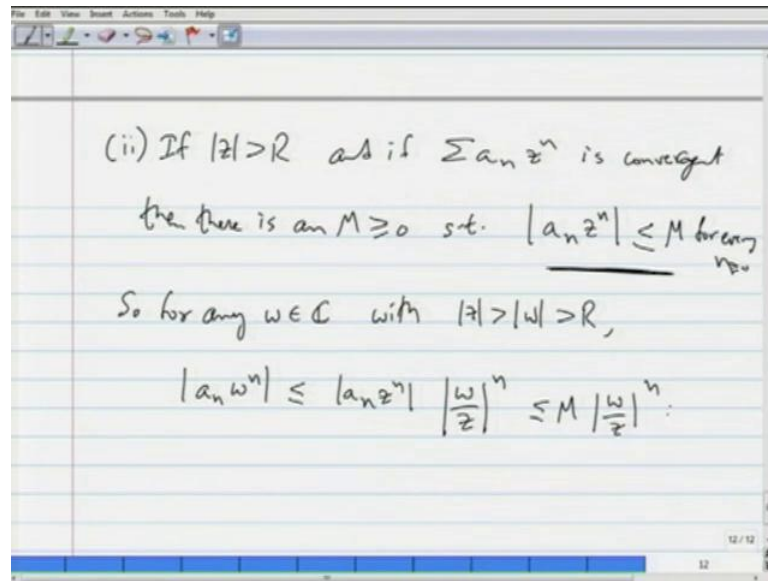 File Edit View Insert Actions Tools Help
(ii) If |z|>R and if Σ aₙ zⁿ is convergent
then there is an M ≥ 0 s.t. |aₙ zⁿ| ≤ M for every
n≥0
So for any w ∈ ℂ with |z|>|w|>R,
|aₙ wⁿ| ≤ |aₙ zⁿ| |w/z|ⁿ ≤ M |w/z|ⁿ.
12/12
12